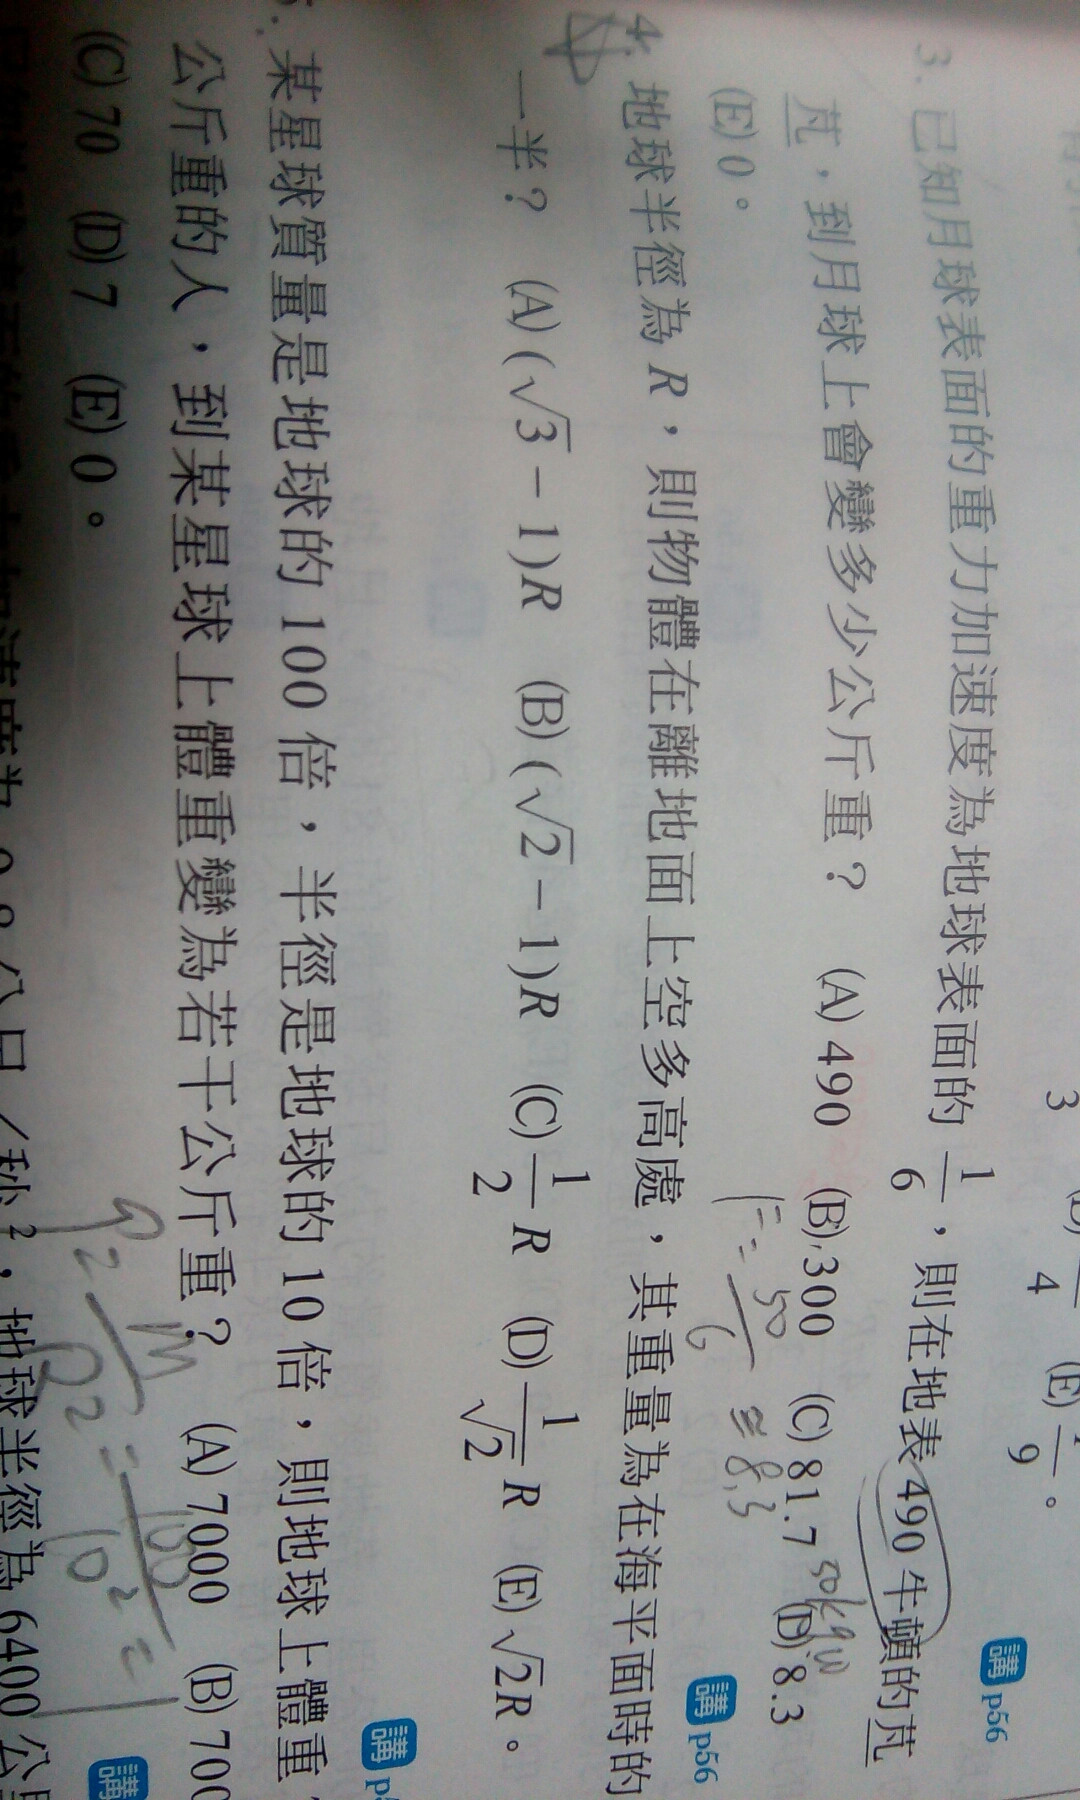 3
(E)
4
9
。
講 p56
3. 已知月球表面的重力加速度為地球表面的 1/6,則在地表 490 牛頓的芃
芃,到月球上會變多少公斤重? (A) 490 (B) 300 (C) 81.7 (D) 8.3
50kgw
(E) 0。
F = 50/6 ≅ 8.3
講 p56
4. 地球半徑為 R,則物體在離地面上空多高處,其重量為在海平面時的
一半? (A) (√3 − 1)R (B) (√2 − 1)R (C) 1/2 R (D) 1/√2 R (E) √2R。
講
某星球質量是地球的 100 倍,半徑是地球的 10 倍,則地球上體重
公斤重的人,到某星球上體重變為若干公斤重? (A) 7000 (B) 700
(C) 70 (D) 7 (E) 0。
= 100/10² =
講
9.8 公尺/秒²,地球半徑為 6400 公